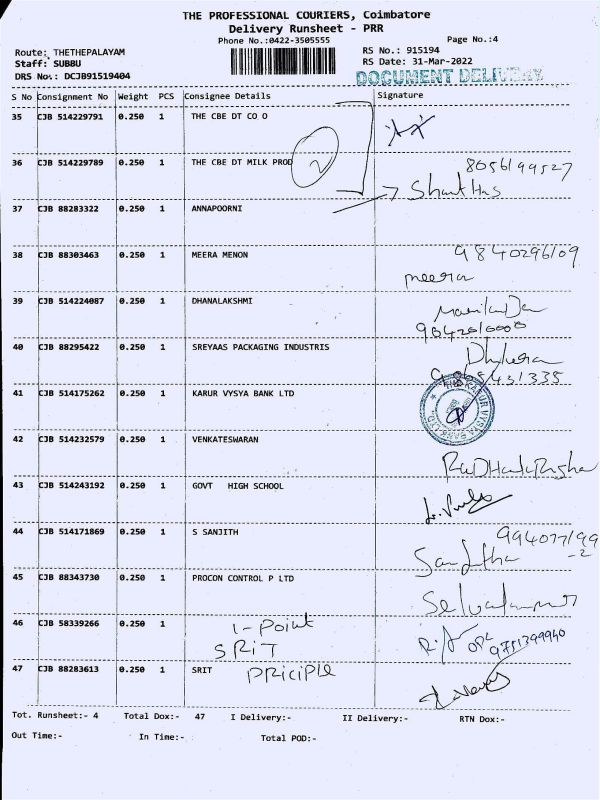 THE PROFESSIONAL COURIERS, Coimbatore
Delivery Runsheet - PRR
Phone No.:0422-3505555 Page No.:4
Route: THETHEPALAYAM RS No.: 915194
Staff: SUBBU RS Date: 31-Mar-2022
DRS No.: DCJB91519404 DOCUMENT DELIVERY
S No Consignment No Weight PCS Consignee Details Signature
35 CJB 514229791 0.250 1 THE CBE DT CO O
36 CJB 514229789 0.250 1 THE CBE DT MILK PROD 2 8056199527
37 CJB 88283322 0.250 1 ANNAPOORNI
38 CJB 88303463 0.250 1 MEERA MENON 9840296109
meera
39 CJB 514224087 0.250 1 DHANALAKSHMI
40 CJB 88295422 0.250 1 SREYAAS PACKAGING INDUSTRIS
41 CJB 514175262 0.250 1 KARUR VYSYA BANK LTD
42 CJB 514232579 0.250 1 VENKATESWARAN
43 CJB 514243192 0.250 1 GOVT HIGH SCHOOL
44 CJB 514171869 0.250 1 S SANJITH
45 CJB 88343730 0.250 1 PROCON CONTROL P LTD
46 CJB 58339266 0.250 1 1-Point
SRIT
47 CJB 88283613 0.250 1 SRIT PRICIPLE
Tot. Runsheet:- 4 Total Dox:- 47 I Delivery:- II Delivery:- RTN Dox:-
Out Time:- In Time:- Total POD:-